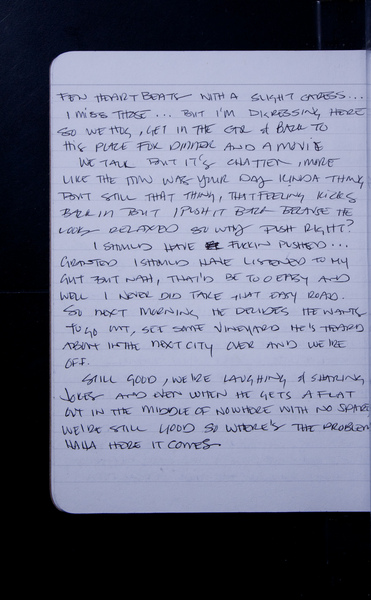 FEW HEARTBEATS WITH A SLIGHT CARESS...
I MISS THOSE... BUT I'M DIGRESSING HERE
SO WE HUG, GET IN THE CAR & BACK TO
HIS PLACE FOR DINNER AND A MOVIE
WE TALK BUT IT'S CHATTER, MORE
LIKE THE HOW WAS YOUR DAY KINDA THING
BUT STILL THAT THING, THAT FEELING KICKS
BACK IN BUT I PUSH IT BACK BECAUSE HE
LOOKS RELAXED SO WHY PUSH RIGHT?
I SHOULD HAVE FUCKIN PUSHED...
GRANTED I SHOULD HAVE LISTENED TO MY
GUT BUT NAH, THAT'D BE TOO EASY AND
WELL I NEVER DID TAKE THAT EASY ROAD.
SO NEXT MORNING HE DECIDES HE WANTS
TO GO OUT, SEE SOME VINEYARD HE'S HEARD
ABOUT IN THE NEXT CITY OVER AND WE'RE
OFF.
STILL GOOD, WE'RE LAUGHING & SHARING
JOKES AND EVEN WHEN HE GETS A FLAT
OUT IN THE MIDDLE OF NOWHERE WITH NO SPARE
WE'RE STILL GOOD SO WHERE'S THE PROBLEM
HAHA HERE IT COMES